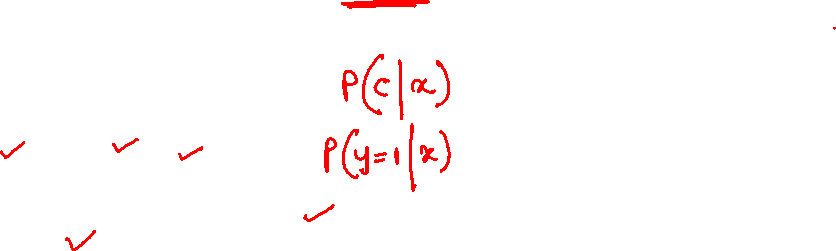 P(c|x)
P(y=1|x)